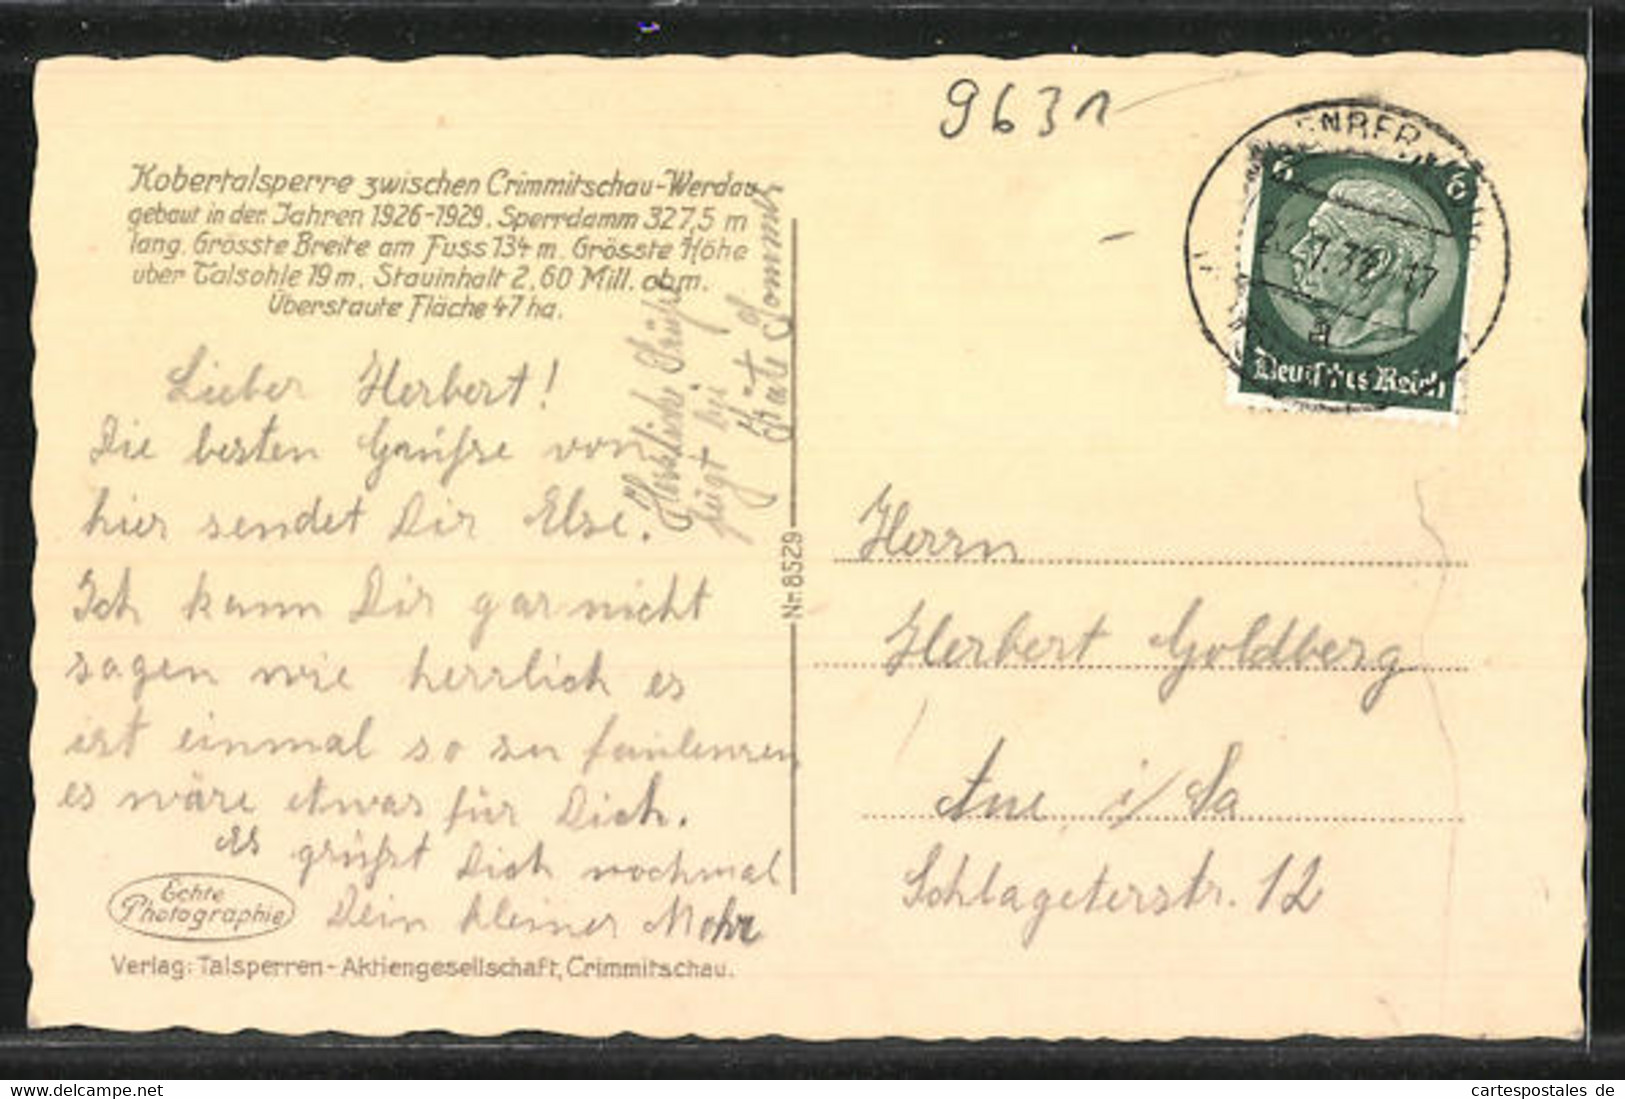 9631
Kobertalsperre zwischen Crimmitschau-Werdau
gebaut in den Jahren 1926-1929. Sperrdamm 327,5 m
lang. Grösste Breite am Fuss 134 m. Grösste Höhe
über Talsohle 19 m. Stauinhalt 2,60 Mill. cbm.
Überstaute Fläche 47 ha.
Lieber Herbert!
Die besten Grüße von
hier sendet Dir Else.
Ich kann Dir gar nicht
sagen wie herrlich es
ist einmal so zu faulenzen
es wäre etwas für Dich.
Es grüßt Dich nochmal
Dein kleiner Mohr
Herzliche Grüße
fügt bei
Käte Sommer
Echte
Photographie
Verlag: Talsperren-Aktiengesellschaft, Crimmitschau.
Nr. 8529
6 6
Deutsches Reich
a
Herrn
Herbert Goldberg
Aue i/Sa
Schlageterstr. 12
the-best-shop
cartespostales de